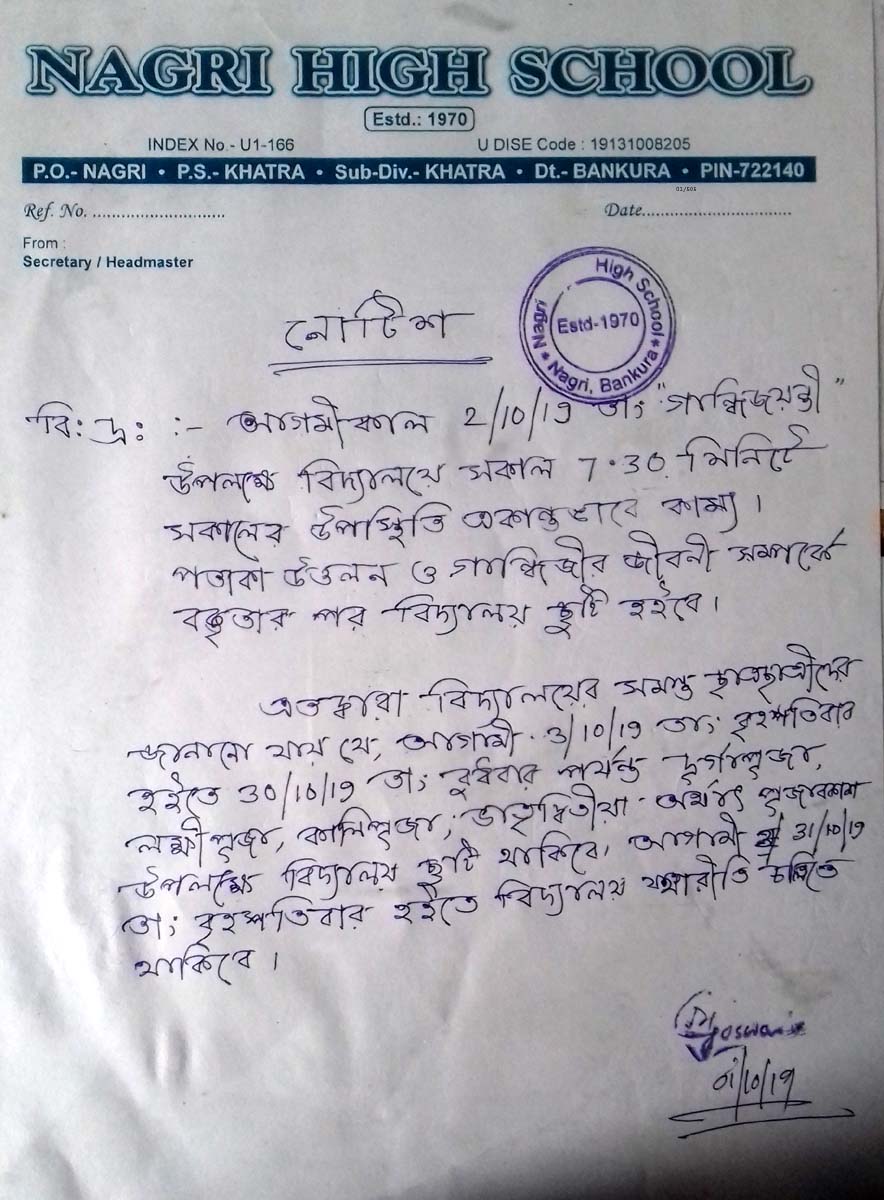 NAGRI HIGH SCHOOL
Estd.: 1970
INDEX No.- U1-166 U DISE Code : 19131008205
P.O.- NAGRI • P.S.- KHATRA • Sub-Div.- KHATRA • Dt.- BANKURA • PIN-722140
01/505
Ref. No. ............................ Date................................
From :
Secretary / Headmaster
Nagri High School
Estd-1970
Nagri, Bankura
নোটিশ
বি: দ্র: :- আগামীকাল 2/10/19 তা; "গান্ধিজয়ন্তী"
উপলক্ষে বিদ্যালয়ে সকাল 7.30 মিনিটে
সকালের উপস্থিতি একান্তভাবে কাম্য।
পতাকা উত্তলন ও গান্ধিজীর জীবনী সম্পর্কে
বক্তৃতার পর বিদ্যালয় ছুটি হইবে।
এতদ্বারা বিদ্যালয়ের সমস্ত ছাত্রছাত্রীদের
জানানো যায় যে, আগামী 3/10/19 তা; বৃহস্পতিবার
হইতে 30/10/19 তা; বুধবার পর্যন্ত দূর্গাপূজা,
লক্ষ্মীপূজা, কালিপূজা, ভাতৃদ্বিতীয়া অর্থাৎ পূজাবকাশ
উপলক্ষে বিদ্যালয় ছুটি থাকিবে। আগামী 31/10/19
তা; বৃহস্পতিবার হইতে বিদ্যালয় যথারীতি চলিতে
থাকিবে।
Goswami
01/10/19